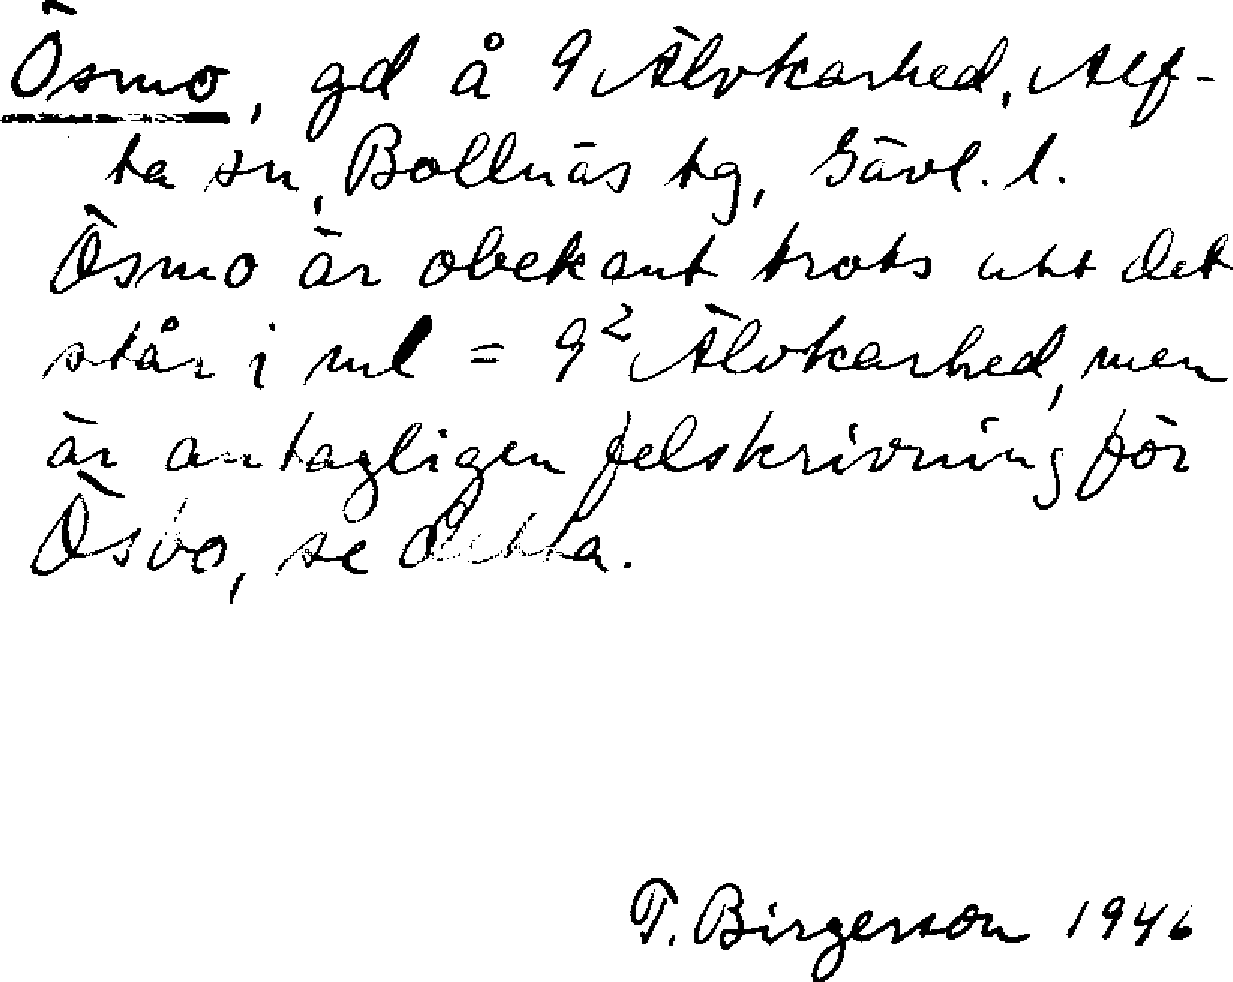 Ösmo, gd å 9 Älvkarhed, Alf-
ta sn, Bollnäs tg, Gävl. l.
Ösmo är obekant trots att det
står i ml = 9² Älvkarhed, men
är antagligen felskrivning för
Ösbo, se detta.
T. Birgerson 1946